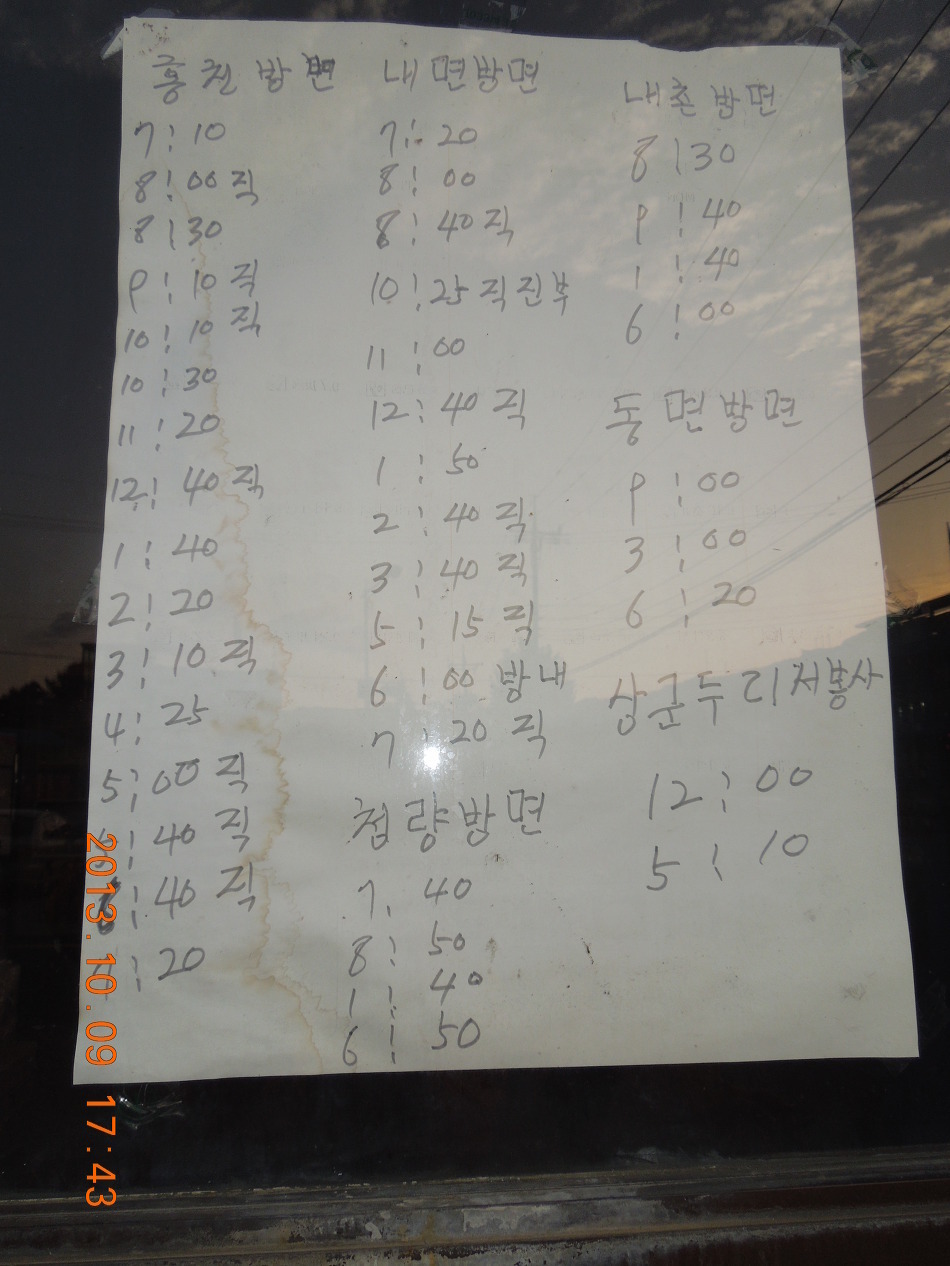 홍천방면
7:10
8:00직
8:30
9:10직
10:10직
10:30
11:20
12:40직
1:40
2:20
3:10직
4:25
5:00직
:40직
:40직
:20
내면방면
7:20
8:00
8:40직
10:25직진부
11:00
12:40직
1:50
2:40직
3:40직
5:15직
6:00방내
7:20직
청량방면
7:40
8:50
1:40
6:50
내촌방면
8:30
9:40
1:40
6:00
동면방면
9:00
3:00
6:20
상군두리저봉사
12:00
5:10
2013.10.09 17:43